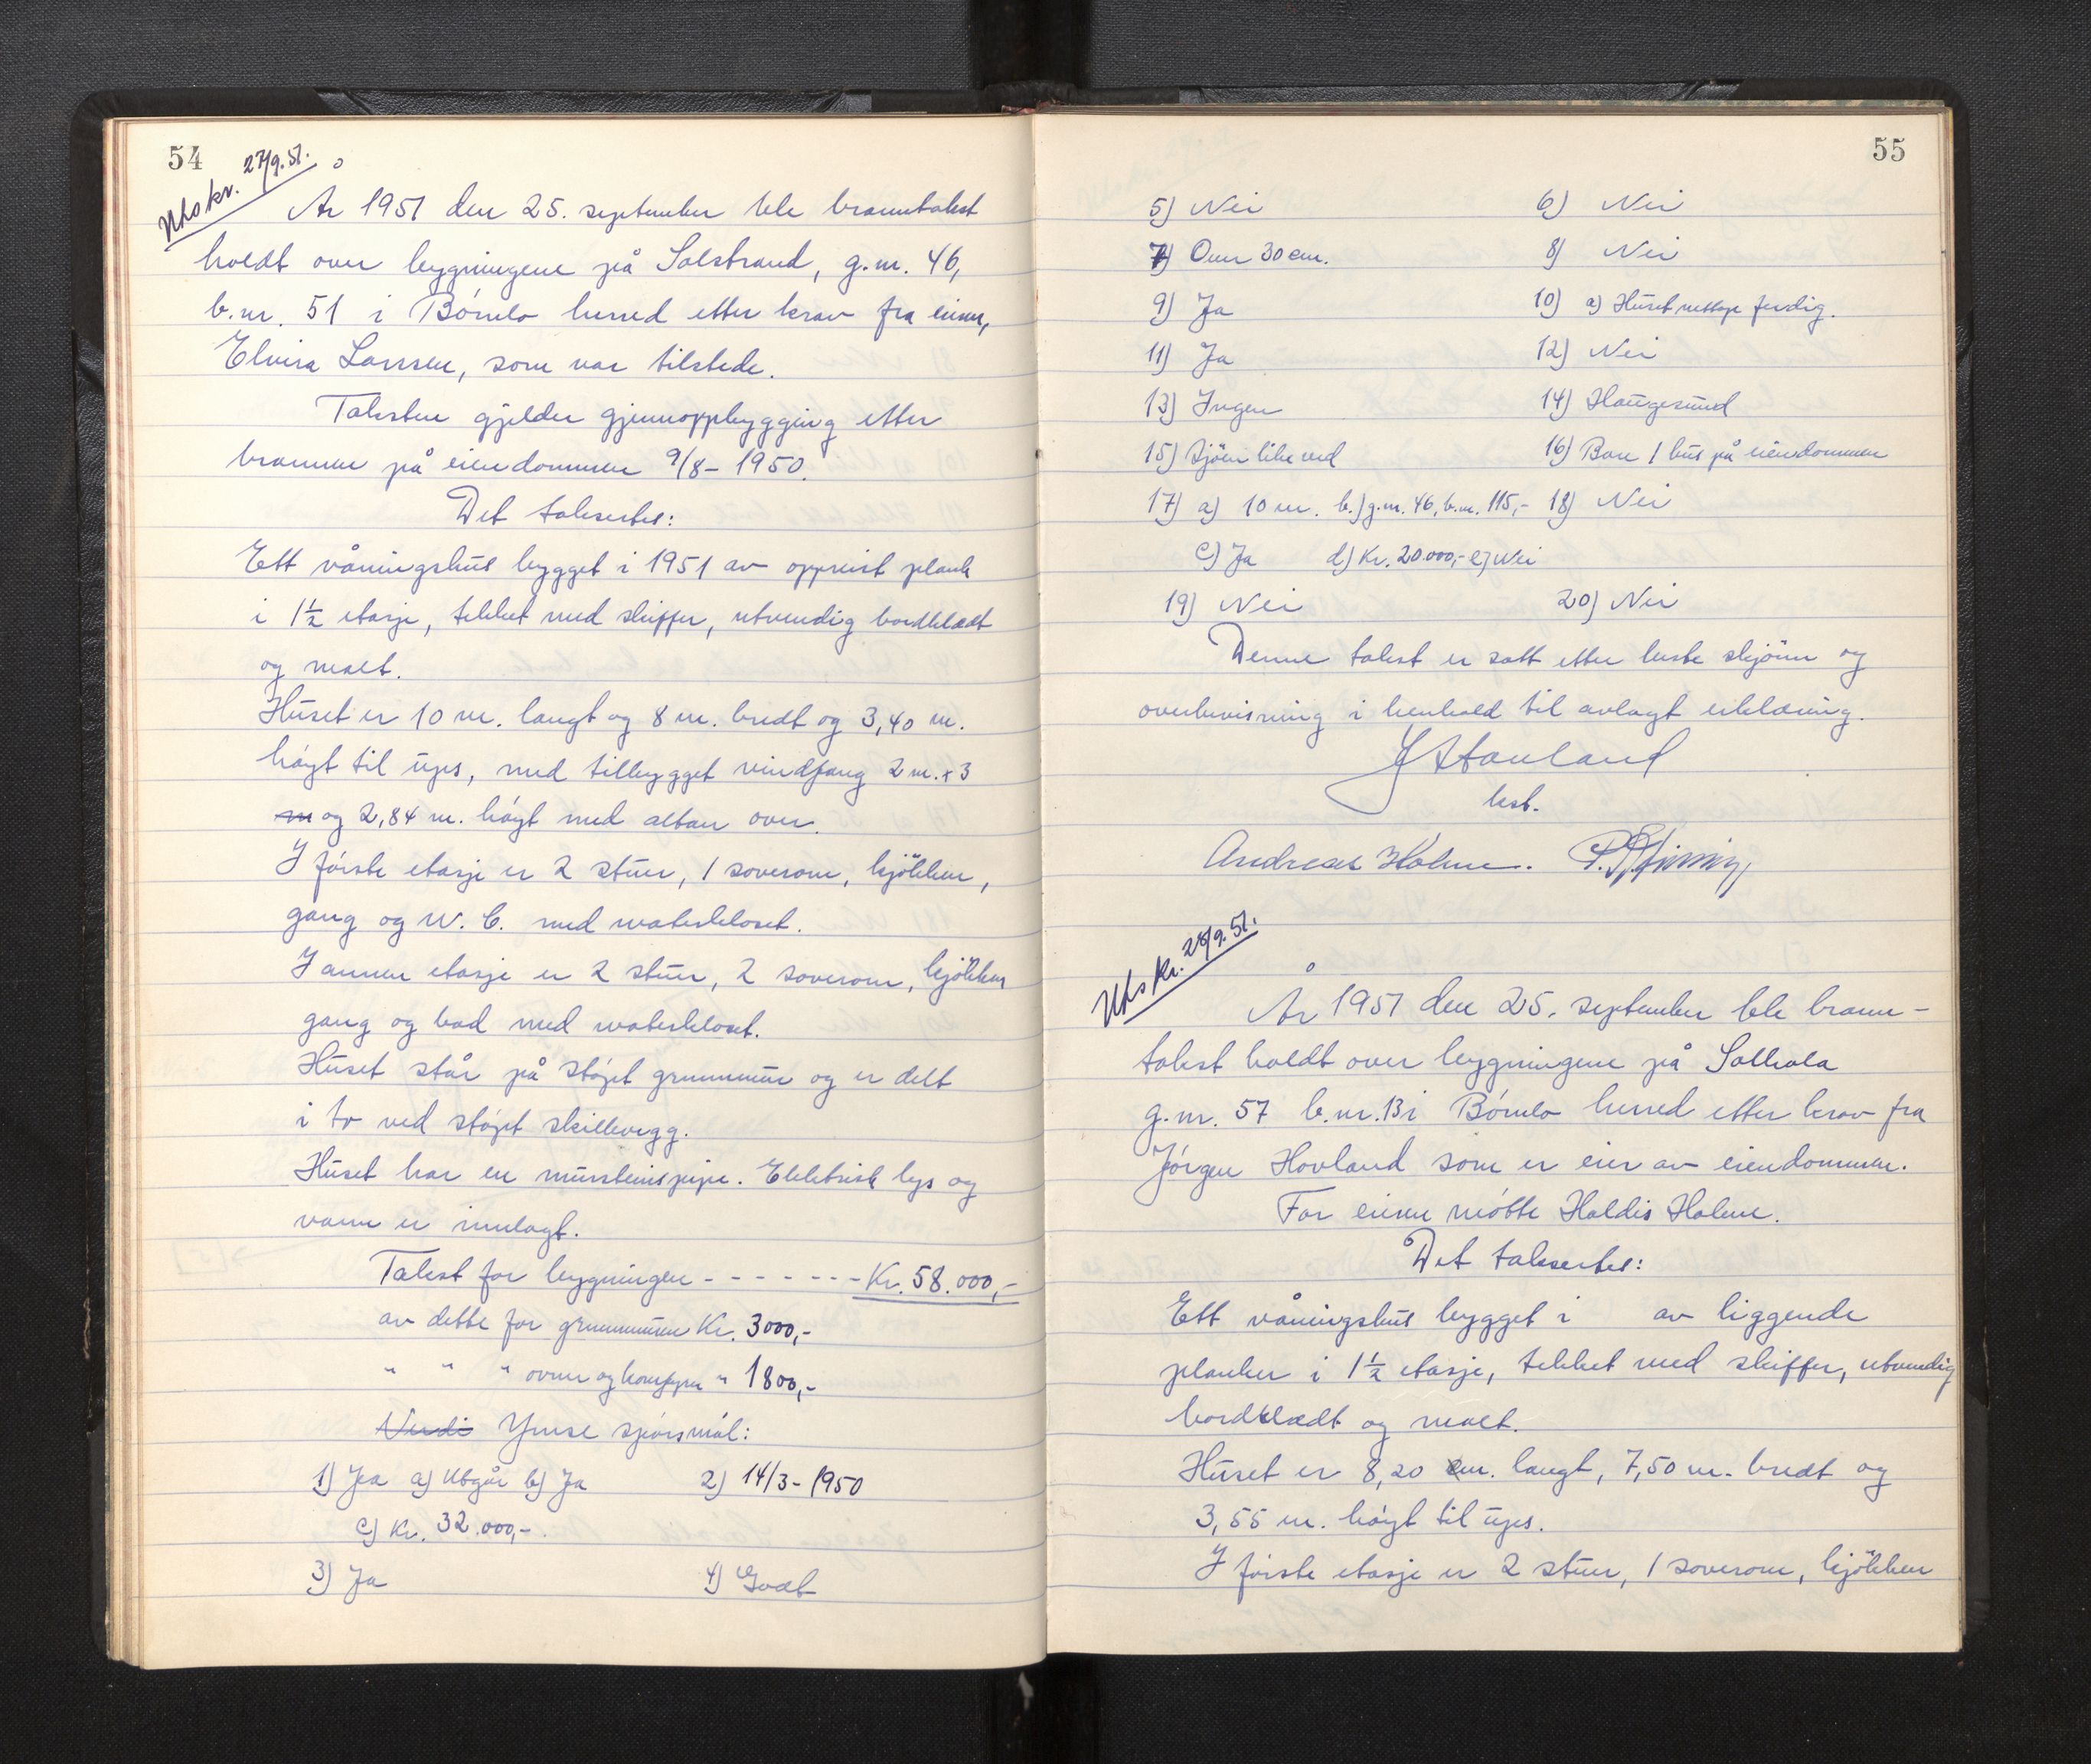 54
Utskr. 27/9.51.
År 1951 den 25. september ble branntakst
holdt over bygningene på Solstrand, g.nr. 46,
b.nr. 51 i Bömlo herred etter krav fra eieren,
Elvira Larsen, som var tilstede.
Taksten gjelder gjennoppbygging etter
brannen på eiendommen 9/8 - 1950.
Det takseres:
Ett våningshus bygget i 1951 av oppreist plank
i 1½ etasje, tekket med skiffer, utvendig bordklædt
og malt.
Huset er 10 m. langt og 8 m. bredt og 3,40 m.
höyt til ups, med tilbygget vindfang 2 m. x 3
m og 2,84 m. höyt med altan over.
I förste etasje er 2 stuer, 1 soverom, kjökken,
gang og W. C. med waterkloset.
I annen etasje er 2 stuer, 2 soverom, kjökken
gang og bad med waterkloset.
Huset står på stöpt grunnmur og er delt
i to ved stöpt skillevegg.
Huset har en mursteinspipe. Elektrisk lys og
vann er innlagt.
Takst for bygningen - - - - - - Kr. 58.000,-
av dette for grunnmuren Kr. 3000,-
" " " ovner og komfyrer " 1800,-
Verdi Ymse spörsmål:
1) Ja a) Utgår b) Ja 2) 14/3 - 1950
c) Kr. 32.000,-
3) Ja 4) Godt
55
5) Nei 6) Nei
7) Over 30 cm. 8) Nei
9) Ja 10) a) Huset nettopp ferdig.
11) Ja 12) Nei
13) Ingen 14) Haugesund
15) Sjöen like ved 16) Bare 1 hus på eiendommen
17) a) 10 m. b.) g.nr. 46, b.nr. 115,- 18) Nei
c) Ja d) Kr. 20.000,- e) Nei
19) Nei 20) Nei
Denne takst er satt etter beste skjönn og
overbevisning i henhold til avlagt erklæring.
Stauland
lest.
Andreas Holme.
Utskr. 28/9.51.
År 1951 den 25. september ble brann-
takst holdt over bygningene på Solhola
g.nr. 57 b.nr. 13 i Bömlo herred etter krav fra
Jörgen Hovland som er eier av eiendommen.
For eieren mötte Haldis Holme.
Det takseres:
Ett våningshus bygget i av liggende
planker i 1½ etasje, tekket med skiffer, utvendig
bordklædt og malt.
Huset er 8,20 m. langt, 7,50 m. bredt og
3,55 m. höyt til ups.
I förste etasje er 2 stuer, 1 soverom, kjökken